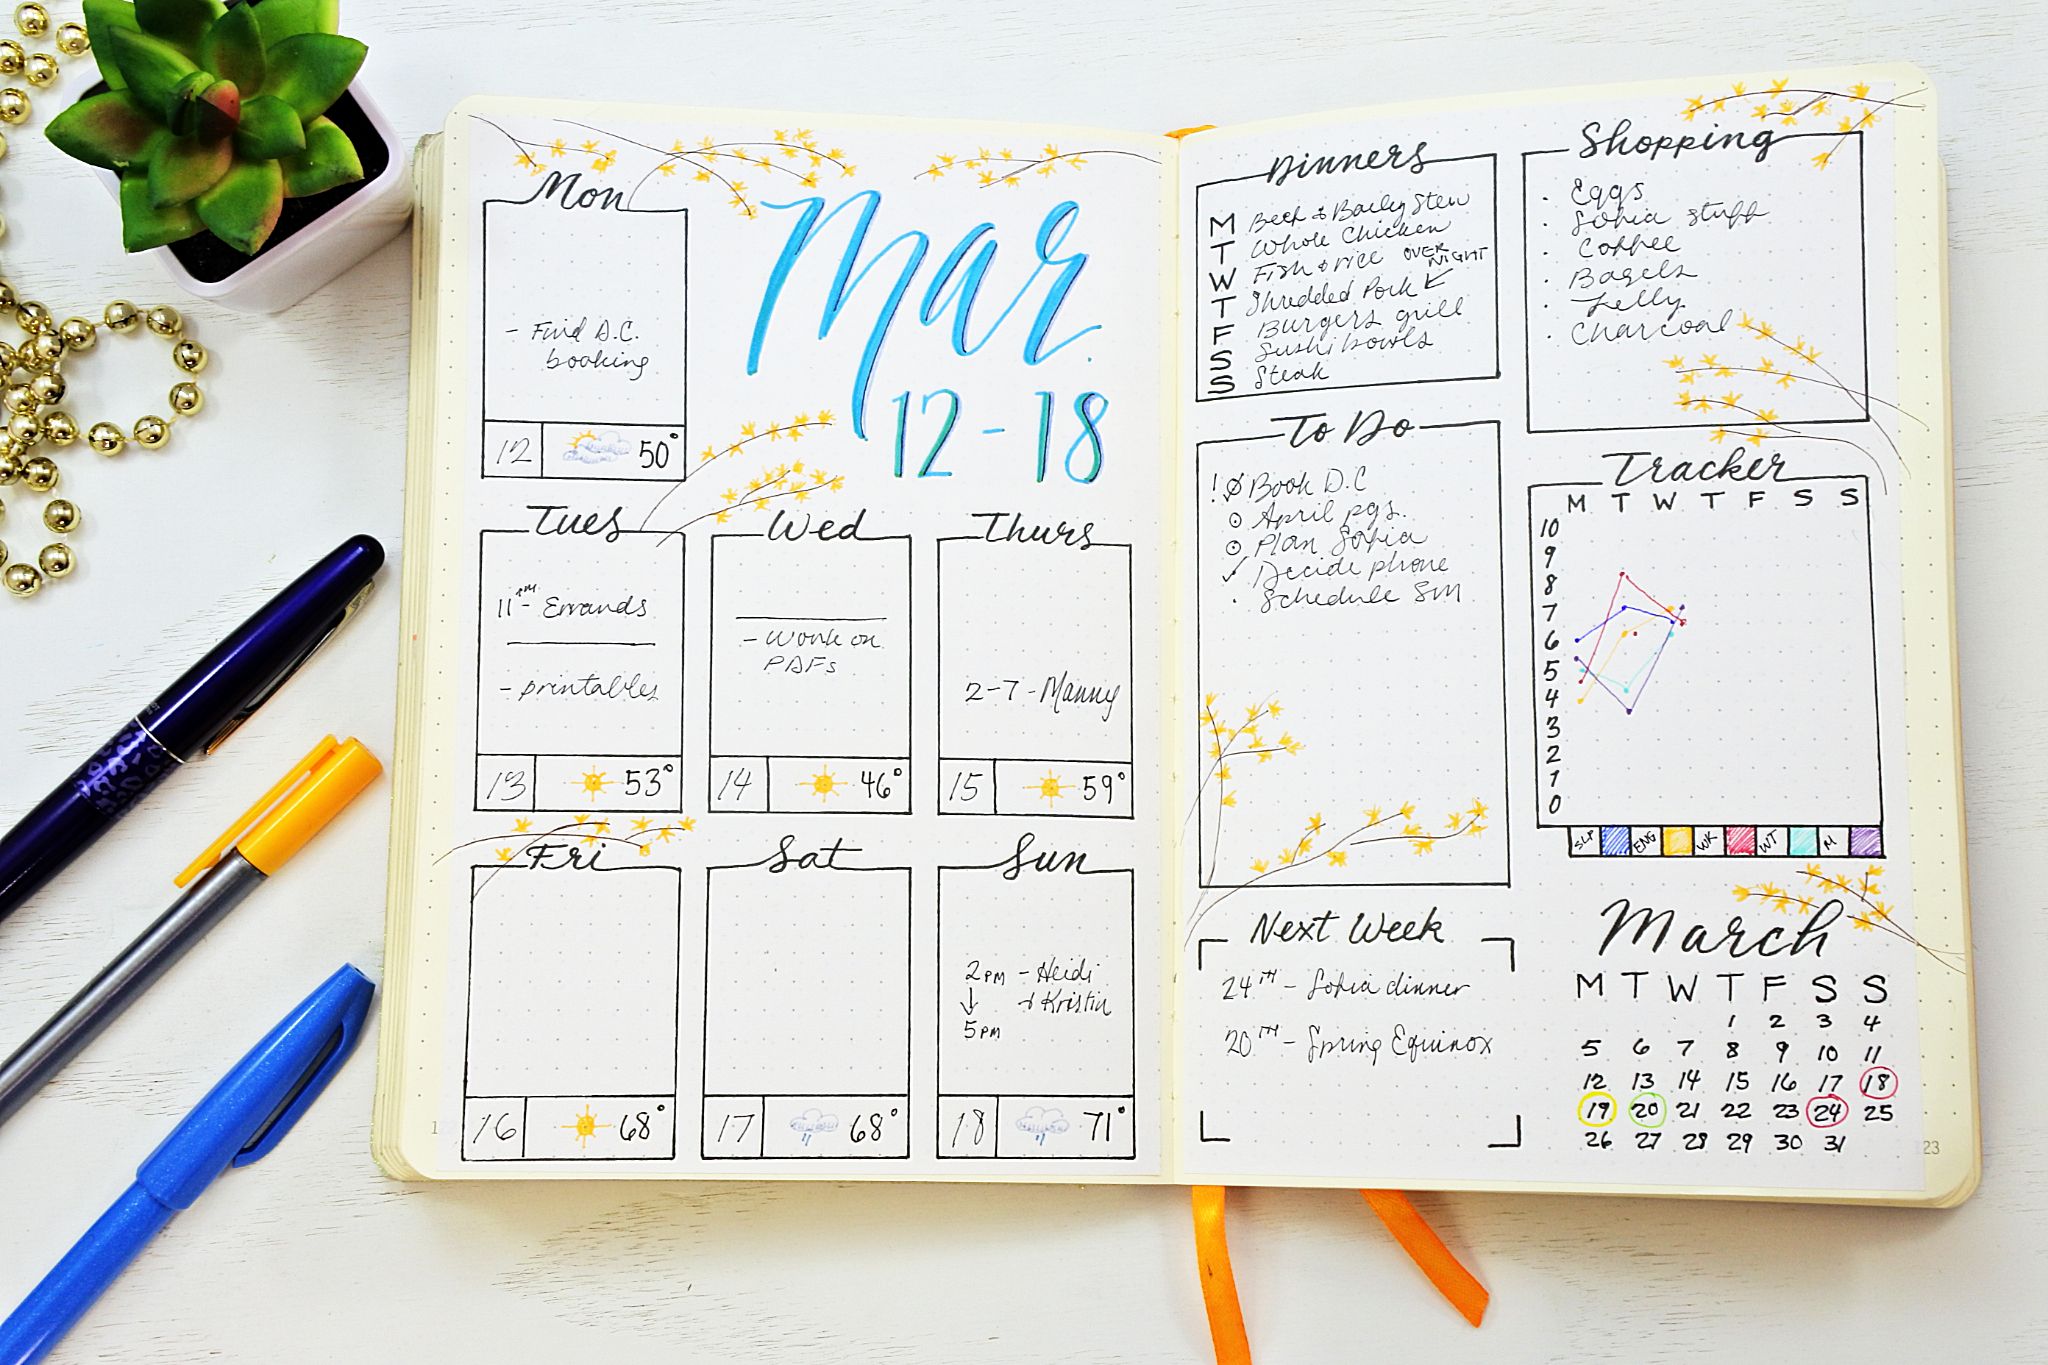 Mar.
12-18
Mon
- Find D.C.
booking
12
50°
Tues
11AM- Errands
- printables
13
53°
Wed
- Work on
PDFs
14
46°
Thurs
2-7-Manny
15
59°
Fri
16
68°
Sat
17
68°
Sun
2PM - Heidi
+ Kristin
5PM
18
71°
Dinners
M Beef & Barley Stew
T Whole Chicken
W Fish & rice OVER
NIGHT
T Shredded Pork
F Burgers grill
S Sushi bowls
S Steak
Shopping
· Eggs
· Sofia stuff
· Coffee
· Bagels
· Jelly
· Charcoal
To Do
! Book D.C
April pgs.
Plan Sofia
✓ Decide phone
· Schedule SM
Tracker
M T W T F S S
10
9
8
7
6
5
4
3
2
1
0
SLP ENG WK WT M
Next Week
24TH - Sofia dinner
20TH - Spring Equinox
March
M T W T F S S
1 2 3 4
5 6 7 8 9 10 11
12 13 14 15 16 17 18
19 20 21 22 23 24 25
26 27 28 29 30 31
23